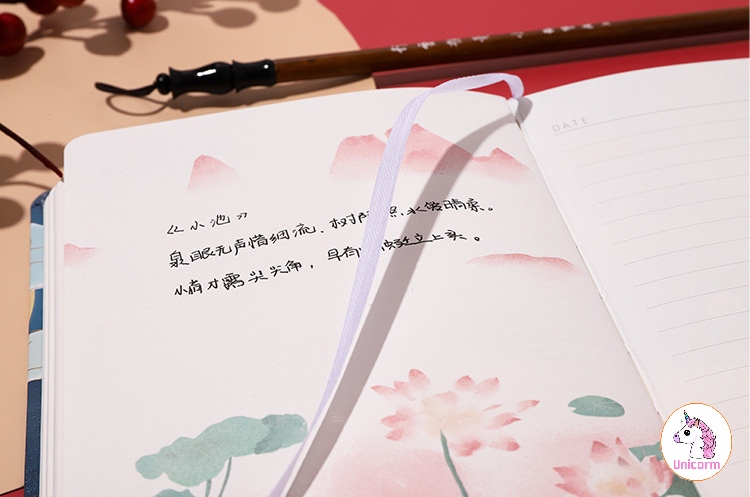 DATE
《小池》
泉眼无声惜细流、树 水爱晴柔。
小荷才露尖尖角，早有 蜓立上头。
Unicorm